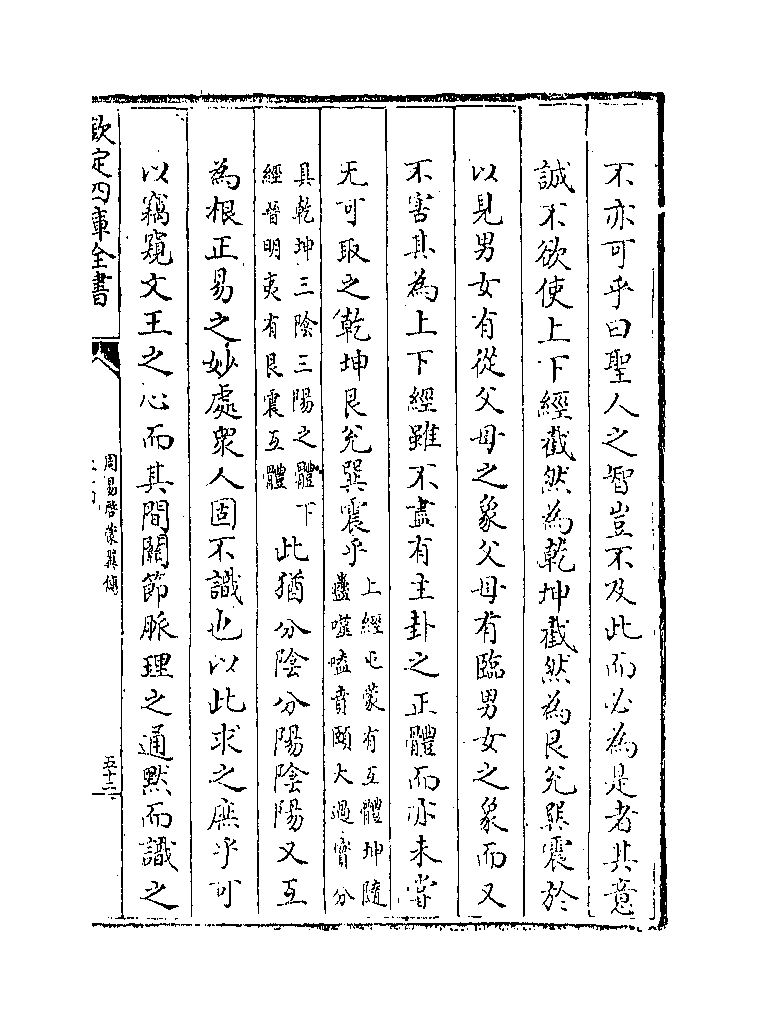 不亦可乎曰聖人之智豈不及此而必為是者其意
誠不欲使上下經截然為乾坤截然為艮兊巽震於
以見男女有從父母之象父母有臨男女之象而又
不害其為上下經雖不盡有主卦之正體而亦未嘗
无可取之乾坤艮兊巽震乎
上經屯蒙有互體坤隨
蠱噬嗑賁頤大過實分
具乾坤三陰三陽之體下
經晉明夷有艮震互體
此猶分陰分陽陰陽又互
為根正易之妙處衆人固不識也以此求之庶乎可
以竊窺文王之心而其間關節脈理之通默而識之
欽定四庫全書
周易啓蒙翼傳
五十二